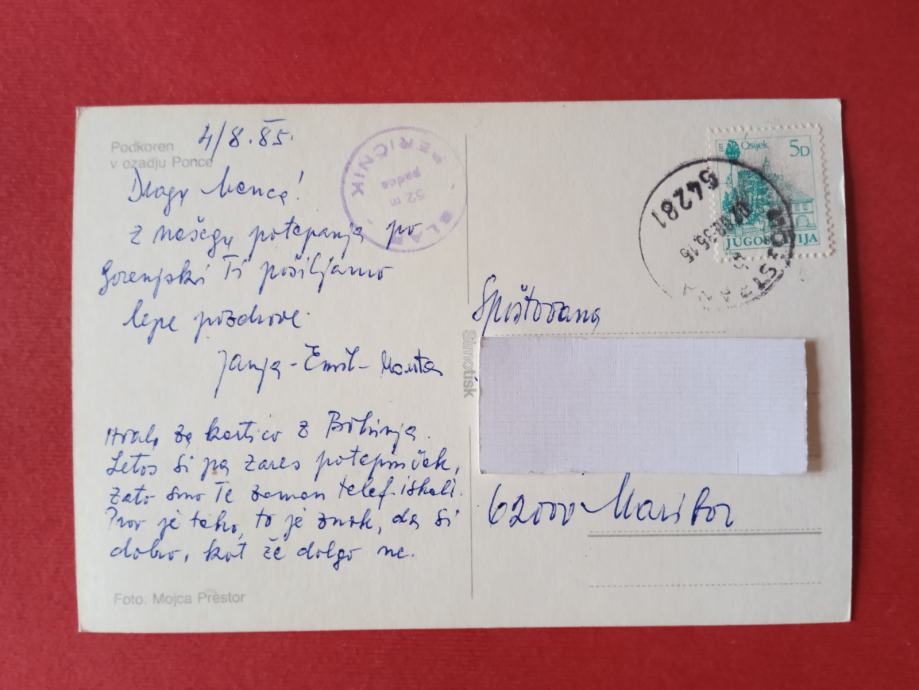 Podkoren
v ozadju Ponce
4/8.85.
Draga Menca!
Z našega potepanja po
Gorenjski Ti pošiljamo
lepe pozdrave.
Janja - Emil - Marta
Hvala za kartico z Bohinja.
Letos si pa zares potepinček,
zato smo Te zaman telef. iskali.
Prav je tako, to je znak, da si
dobro, kot že dolgo ne.
Foto: Mojca Prestor
SLAP PERIČNIK
52 m
padca
Simotisk
Osijek
5D
JUGOSLAVIJA
64281
Spoštovana
62000 Maribor